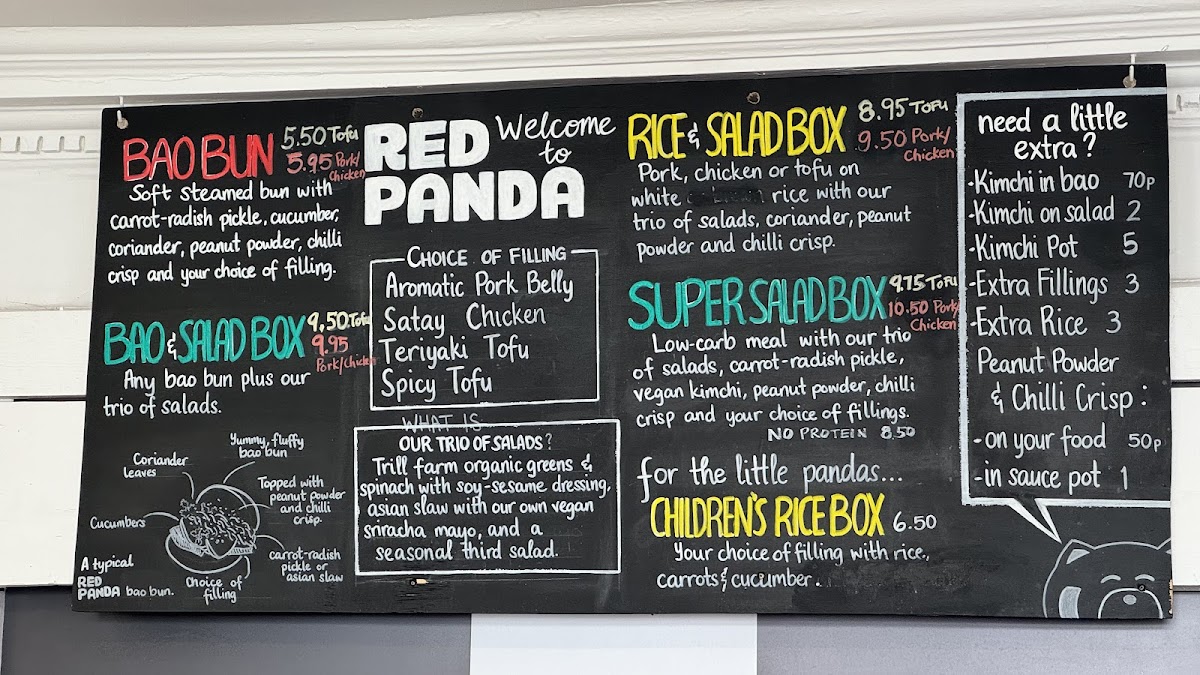 BAO BUN 5.50 Tofu
5.95 Pork/
Chicken
Soft steamed bun with
carrot-radish pickle, cucumber,
coriander, peanut powder, chilli
crisp and your choice of filling.
BAO & SALAD BOX 9.50 Tofu
9.95
Pork/Chicken
Any bao bun plus our
trio of salads.
Yummy, fluffy
bao bun
Coriander
leaves
Topped with
peanut powder
and chilli
crisp.
Cucumbers
carrot-radish
pickle or
asian slaw
Choice of
filling
A typical
RED
PANDA bao bun.
Welcome
to
RED
PANDA
CHOICE OF FILLING
Aromatic Pork Belly
Satay Chicken
Teriyaki Tofu
Spicy Tofu
WHAT IS
OUR TRIO OF SALADS?
Trill farm organic greens &
spinach with soy-sesame dressing,
asian slaw with our own vegan
sriracha mayo, and a
seasonal third salad.
RICE & SALAD BOX 8.95 TOFU
9.50 Pork/
Chicken
Pork, chicken or tofu on
white rice with our
trio of salads, coriander, peanut
powder and chilli crisp.
SUPER SALAD BOX 9.75 TOFU
10.50 Pork/
Chicken
Low-carb meal with our trio
of salads, carrot-radish pickle,
vegan kimchi, peanut powder, chilli
crisp and your choice of fillings.
NO PROTEIN 8.50
for the little pandas...
CHILDREN'S RICE BOX 6.50
Your choice of filling with rice,
carrots & cucumber.
need a little
extra?
-Kimchi in bao 70p
-Kimchi on salad 2
-Kimchi Pot 5
-Extra Fillings 3
-Extra Rice 3
Peanut Powder
& Chilli Crisp:
-on your food 50p
-in sauce pot 1